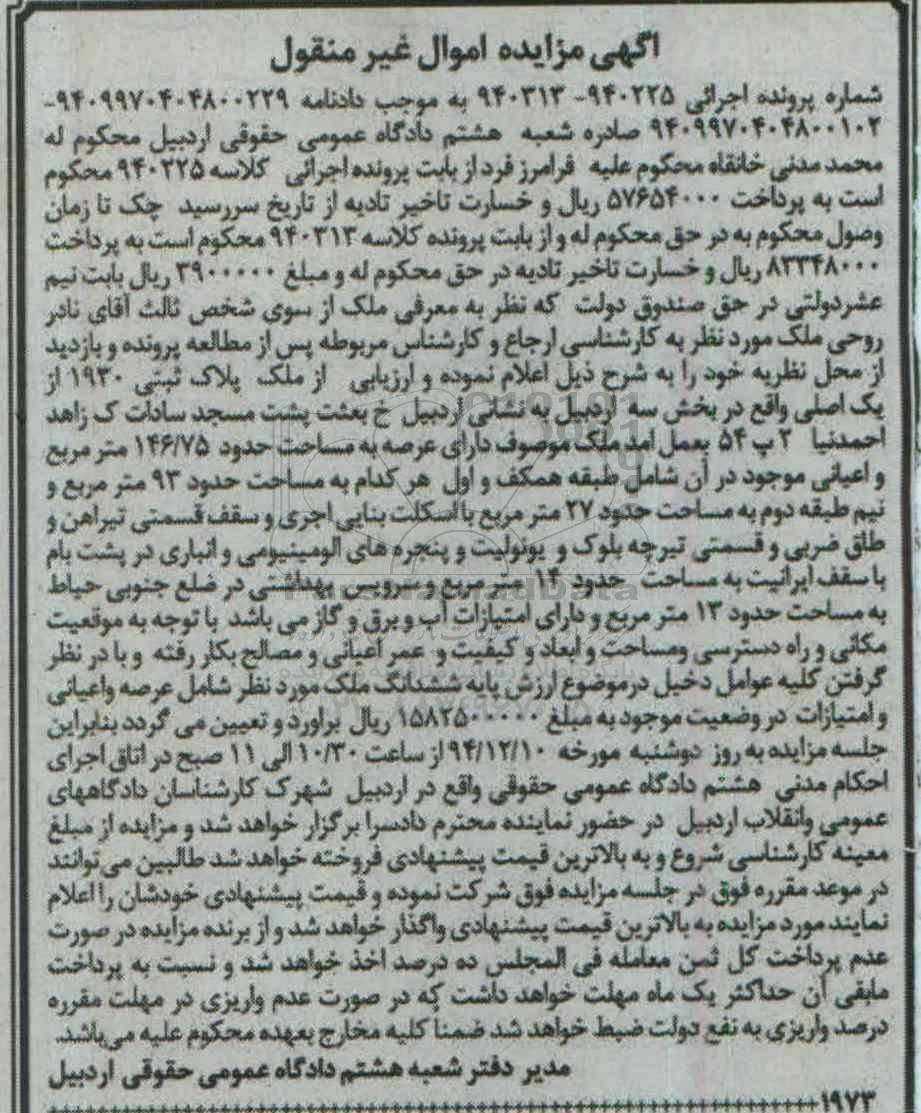 آگهی مزایده اموال غیر منقول
شماره پرونده اجرائی ۹۴۰۲۲۵- ۹۴۰۳۱۳ به موجب دادنامه ۹۴۰۹۹۷۰۴۰۴۸۰۰۲۲۹-
۹۴۰۹۹۷۰۴۰۴۸۰۰۱۰۲ صادره شعبه هشتم دادگاه عمومی حقوقی اردبیل محکوم له
محمد مدنی خانقاه محکوم علیه فرامرز فرد از بابت پرونده اجرائی کلاسه ۹۴۰۲۲۵ محکوم
است به پرداخت ۵۷۶۵۴۰۰۰ ریال و خسارت تاخیر تادیه از تاریخ سررسید چک تا زمان
وصول محکوم به در حق محکوم له و از بابت پرونده کلاسه ۹۴۰۳۱۳ محکوم است به پرداخت
۸۳۳۴۸۰۰۰ ریال و خسارت تاخیر تادیه در حق محکوم له و مبلغ ۳۹۰۰۰۰۰ ریال بابت نیم
عشردولتی در حق صندوق دولت که نظر به معرفی ملک از سوی شخص ثالث آقای نادر
روحی ملک مورد نظر به کارشناسی ارجاع و کارشناس مربوطه پس از مطالعه پرونده و بازدید
از محل نظریه خود را به شرح ذیل اعلام نموده و ارزیابی از ملک پلاک ثبتی ۱۹۳۰ از
یک اصلی واقع در بخش سه اردبیل به نشانی اردبیل خ بعثت پشت مسجد سادات ک زاهد
احمدنیا ۲ پ ۵۴ بعمل امد ملک موصوف دارای عرصه به مساحت حدود ۱۴۶/۷۵ متر مربع
و اعیانی موجود در آن شامل طبقه همکف و اول هر کدام به مساحت حدود ۹۳ متر مربع و
نیم طبقه دوم به مساحت حدود ۲۷ متر مربع با اسکلت بنایی اجری و سقف قسمتی تیراهن و
طاق ضربی و قسمتی تیرچه بلوک و یونولیت و پنجره های الومینیومی و انباری در پشت بام
با سقف ایرانیت به مساحت حدود ۱۴ متر مربع و سرویس بهداشتی در ضلع جنوبی حیاط
به مساحت حدود ۱۳ متر مربع و دارای امتیازات آب و برق و گاز می باشد با توجه به موقعیت
مکانی و راه دسترسی ومساحت و ابعاد و کیفیت و عمر اعیانی و مصالح بکار رفته و با در نظر
گرفتن کلیه عوامل دخیل درموضوع ارزش پایه ششدانگ ملک مورد نظر شامل عرصه واعیانی
و امتیازات در وضعیت موجود به مبلغ ۱۵۸۲۵۰۰۰۰۰ ریال براورد و تعیین می گردد بنابراین
جلسه مزایده به روز دوشنبه مورخه ۹۴/۱۲/۱۰ از ساعت ۱۰/۳۰ الی ۱۱ صبح در اتاق اجرای
احکام مدنی هشتم دادگاه عمومی حقوقی واقع در اردبیل شهرک کارشناسان دادگاههای
عمومی وانقلاب اردبیل در حضور نماینده محترم دادسرا برگزار خواهد شد و مزایده از مبلغ
معینه کارشناسی شروع و به بالاترین قیمت پیشنهادی فروخته خواهد شد طالبین می‌توانند
در موعد مقرره فوق در جلسه مزایده فوق شرکت نموده و قیمت پیشنهادی خودشان را اعلام
نمایند مورد مزایده به بالاترین قیمت پیشنهادی واگذار خواهد شد و از برنده مزایده در صورت
عدم پرداخت کل ثمن معامله فی المجلس ده درصد اخذ خواهد شد و نسبت به پرداخت
مابقی آن حداکثر یک ماه مهلت خواهد داشت که در صورت عدم واریزی در مهلت مقرره
درصد واریزی به نفع دولت ضبط خواهد شد ضمنا کلیه مخارج بعهده محکوم علیه می‌باشد.
مدیر دفتر شعبه هشتم دادگاه عمومی حقوقی اردبیل
۱۹۷۳